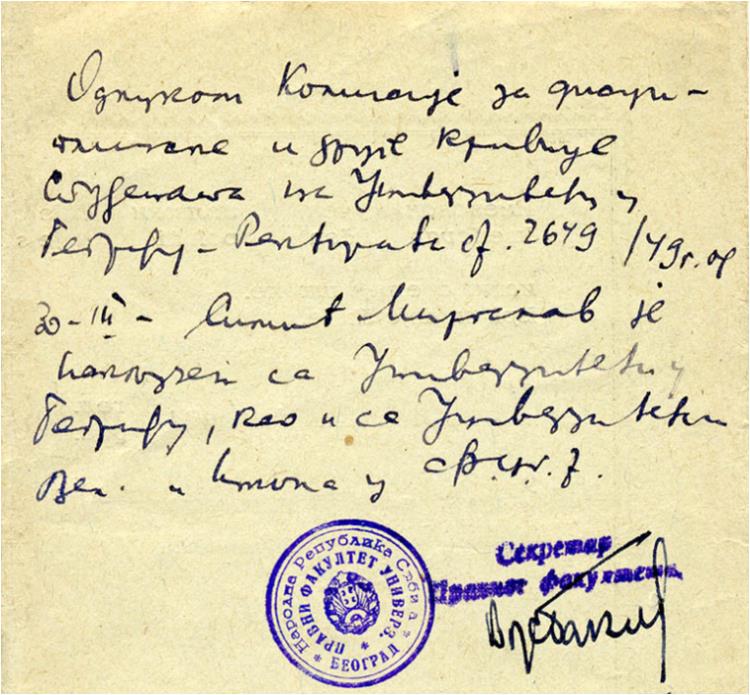 Одлуком Комисије за дисци-
плинске и друге кривице
студената на Универзитету у
Београду - Ректората сд. 2649 /49г. од
30-III- Симић Мирослав је
искључен са Универзитета у
Београду, као и са Универзитета
и школа у ФНРЈ.
Народна Република Србија
ПРАВНИ ФАКУЛТЕТ УНИВЕРЗ.
БЕОГРАД
Секретар
Правног факултета